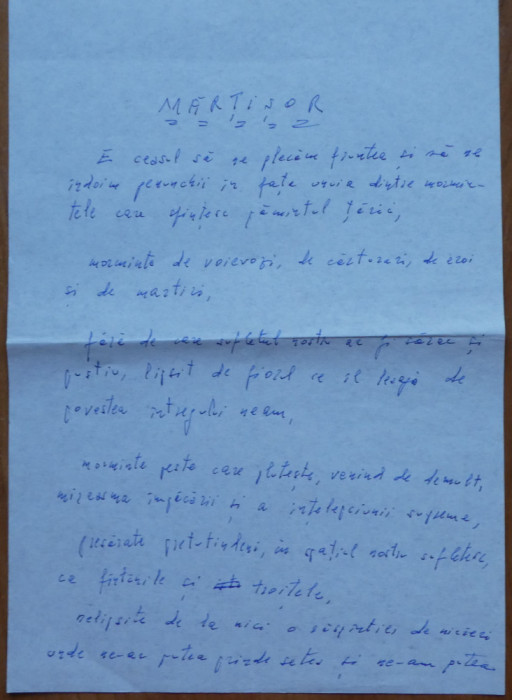 MĂRȚIȘOR
E ceasul să ne plecăm fruntea și să ne
îndoim genunchii în fața unuia dintre mormin-
tele care sfințesc pămîntul țării,
morminte de voievozi, de cărturari, de eroi
și de martiri,
fără de care sufletul nostru ar fi sărac și
pustiu, lipsit de firul ce să lege de
povestea întregului neam,
morminte peste care plutește, venind de demult,
mireasma și a înțelepciunii supreme,
presărate pretutindeni, în spațiul nostru sufletesc,
ca fîntînile și troițele,
nelipsite de la nici o răspîntie de nicăieri
unde ne-ar putea prinde setea și ne-am putea